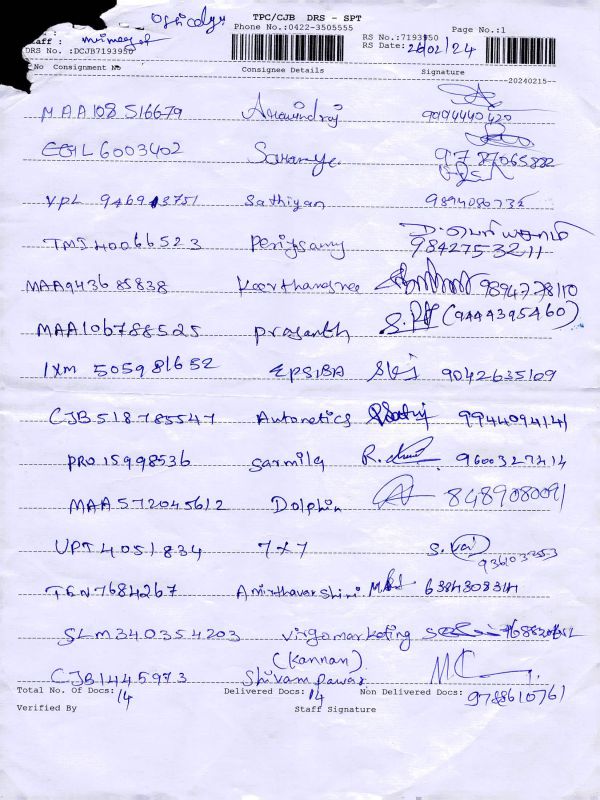 TPC/CJB DRS - SPT
Phone No.:0422-3505555 Page No.:1
RS No.:7193950
Staff :
RS Date: 26/02/24
DRS No. :DCJB7193950
No Consignment No Consignee Details Signature
--20240215--
MAA108516679 Aravindraj 9994440420
6003402 Saranya
VPL Sathiyan
TMS40066523 Periysamy 9842753211
MAA943685838 Keerthanasree 9894778110
MAA106788525 prasanth S. (9444395460)
IXM 505981652 EPSIBA 9042635109
CJB518785547 Automatics 9944094141
PRO15998536 Sarmila R. 9600327414
MAA572045612 Dolphin 8489080091
UPT4051834 7x7 S.
TEN7684267 Amirthavarshini 6384308344
SLM340354203 virgomarketing
(Kannan)
CJB1445973 Shivam pawar
Total No. Of Docs: 14 Delivered Docs: 14 Non Delivered Docs: 9788610761
Verified By Staff Signature